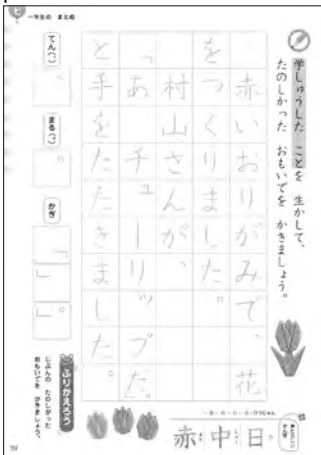 一年生の まとめ
学しゅうした ことを 生かして、
たのしかった おもいでを かきましょう。
赤いおりがみで、花
をつくりました。
村山さんが、
「あ、チューリップだ。」
と手をたたきました。
てん(、)
、
まる(。)
。
かぎ
「
」
」。
ふりかえろう
じぶんの たのしかった
おもいでを かきましょう。
赤 中 日
39